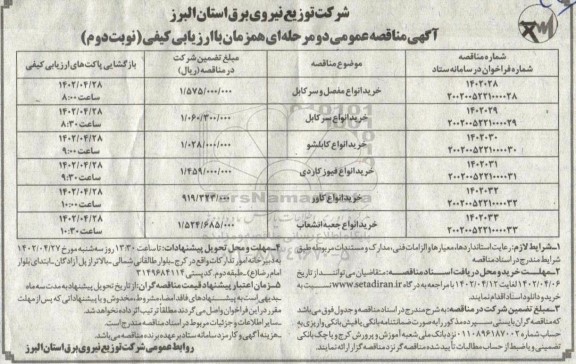 شرکت توزیع نیروی برق استان البرز
آگهی مناقصه عمومی دو مرحله ای همزمان با ارزیابی کیفی (نوبت دوم)
شماره مناقصه شماره فراخوان در سامانه ستاد | موضوع مناقصه | مبلغ تضمین شرکت در مناقصه (ریال) | بازگشایی پاکت های ارزیابی کیفی
۱۴۰۲۰۲۸ ۲۰۰۲۰۰۵۲۲۱۰۰۰۰۲۸ | خرید انواع مفصل و سرکابل | ۱/۵۷۵/۰۰۰/۰۰۰ | ۱۴۰۲/۰۴/۲۸ ساعت ۸:۰۰
۱۴۰۲۰۲۹ ۲۰۰۲۰۰۵۲۲۱۰۰۰۰۲۹ | خرید انواع سرکابل | ۱/۰۶۰/۳۰۰/۰۰۰ | ۱۴۰۲/۰۴/۲۸ ساعت ۸:۳۰
۱۴۰۲۰۳۰ ۲۰۰۲۰۰۵۲۲۱۰۰۰۰۳۰ | خرید انواع کابلشو | ۱/۰۲۸/۰۰۰/۰۰۰ | ۱۴۰۲/۰۴/۲۸ ساعت ۹:۰۰
۱۴۰۲۰۳۱ ۲۰۰۲۰۰۵۲۲۱۰۰۰۰۳۱ | خرید انواع فیوز کاردی | ۱/۴۵۹/۰۰۰/۰۰۰ | ۱۴۰۲/۰۴/۲۸ ساعت ۹:۳۰
۱۴۰۲۰۳۲ ۲۰۰۲۰۰۵۲۲۱۰۰۰۰۳۲ | خرید انواع کاور | ۹۱۹/۳۲۳/۰۰۰ | ۱۴۰۲/۰۴/۲۸ ساعت ۱۰:۰۰
۱۴۰۲۰۳۳ ۲۰۰۲۰۰۵۲۲۱۰۰۰۰۳۳ | خرید انواع جعبه انشعاب | ۱/۵۲۴/۶۸۵/۰۰۰ | ۱۴۰۲/۰۴/۲۸ ساعت ۱۰:۳۰
۱- شرایط لازم: رعایت استانداردها، معیارها و الزامات فنی، مدارک و مستندات مربوطه طبق
شرایط مندرج در اسناد مناقصه
۲- مهلت خرید و محل دریافت اسناد مناقصه: متقاضیان می توانند از تاریخ
۱۴۰۲/۰۴/۰۶ لغایت ۱۴۰۲/۰۴/۱۲ با مراجعه به درگاه www.setadiran.ir نسبت به
خرید و دانلود اسناد اقدام نمایند.
۳- مبلغ تضمین شرکت در مناقصه: به شرح مندرج در اسناد مناقصه و جدول فوق می باشد
که مناقصه گران بایستی سپرده مذکور را به صورت ضمانتنامه بانکی یا فیش بانکی واریزی به
حساب شماره ۰۱۱۰۸۹۶۱۸۷۰۰۲ نزد بانک ملی شعبه آموزش و پرورش کرج و یا چک بانکی
تضمینی و یا ضبط از حساب مطالبات تأیید شده مناقصه گر نزد مناقصه گزار ارائه نمایند.
۴- مهلت و محل تحویل پیشنهادات: تا ساعت ۱۳:۳۰ روز سه شنبه مورخ ۱۴۰۲/۰۴/۲۷
به دبیرخانه امور تدارکات واقع در کرج، بلوار طالقانی شمالی، بالاتر از پل آزادگان، ابتدای بلوار
امام رضا(ع)، طبقه دوم، کدپستی ۳۱۴۹۶۸۴۱۱۴
۵- زمان اعتبار پیشنهاد قیمت مناقصه گران: از تاریخ تحویل پیشنهاد به مدت سه ماه
بدیهی است به پیشنهادهای فاقد امضا، مشروط، مخدوش و یا پیشنهاداتی که پس از مهلت
مقرر در این فراخوان واصل می گردد مطلقاً ترتیب اثر داده نخواهد شد.
سایر اطلاعات و جزئیات مربوط در اسناد مناقصه مندرج است.
هزینه آگهی و کارمزد سامانه ستاد بر عهده برنده مناقصه می باشد.
روابط عمومی شرکت توزیع نیروی برق استان البرز